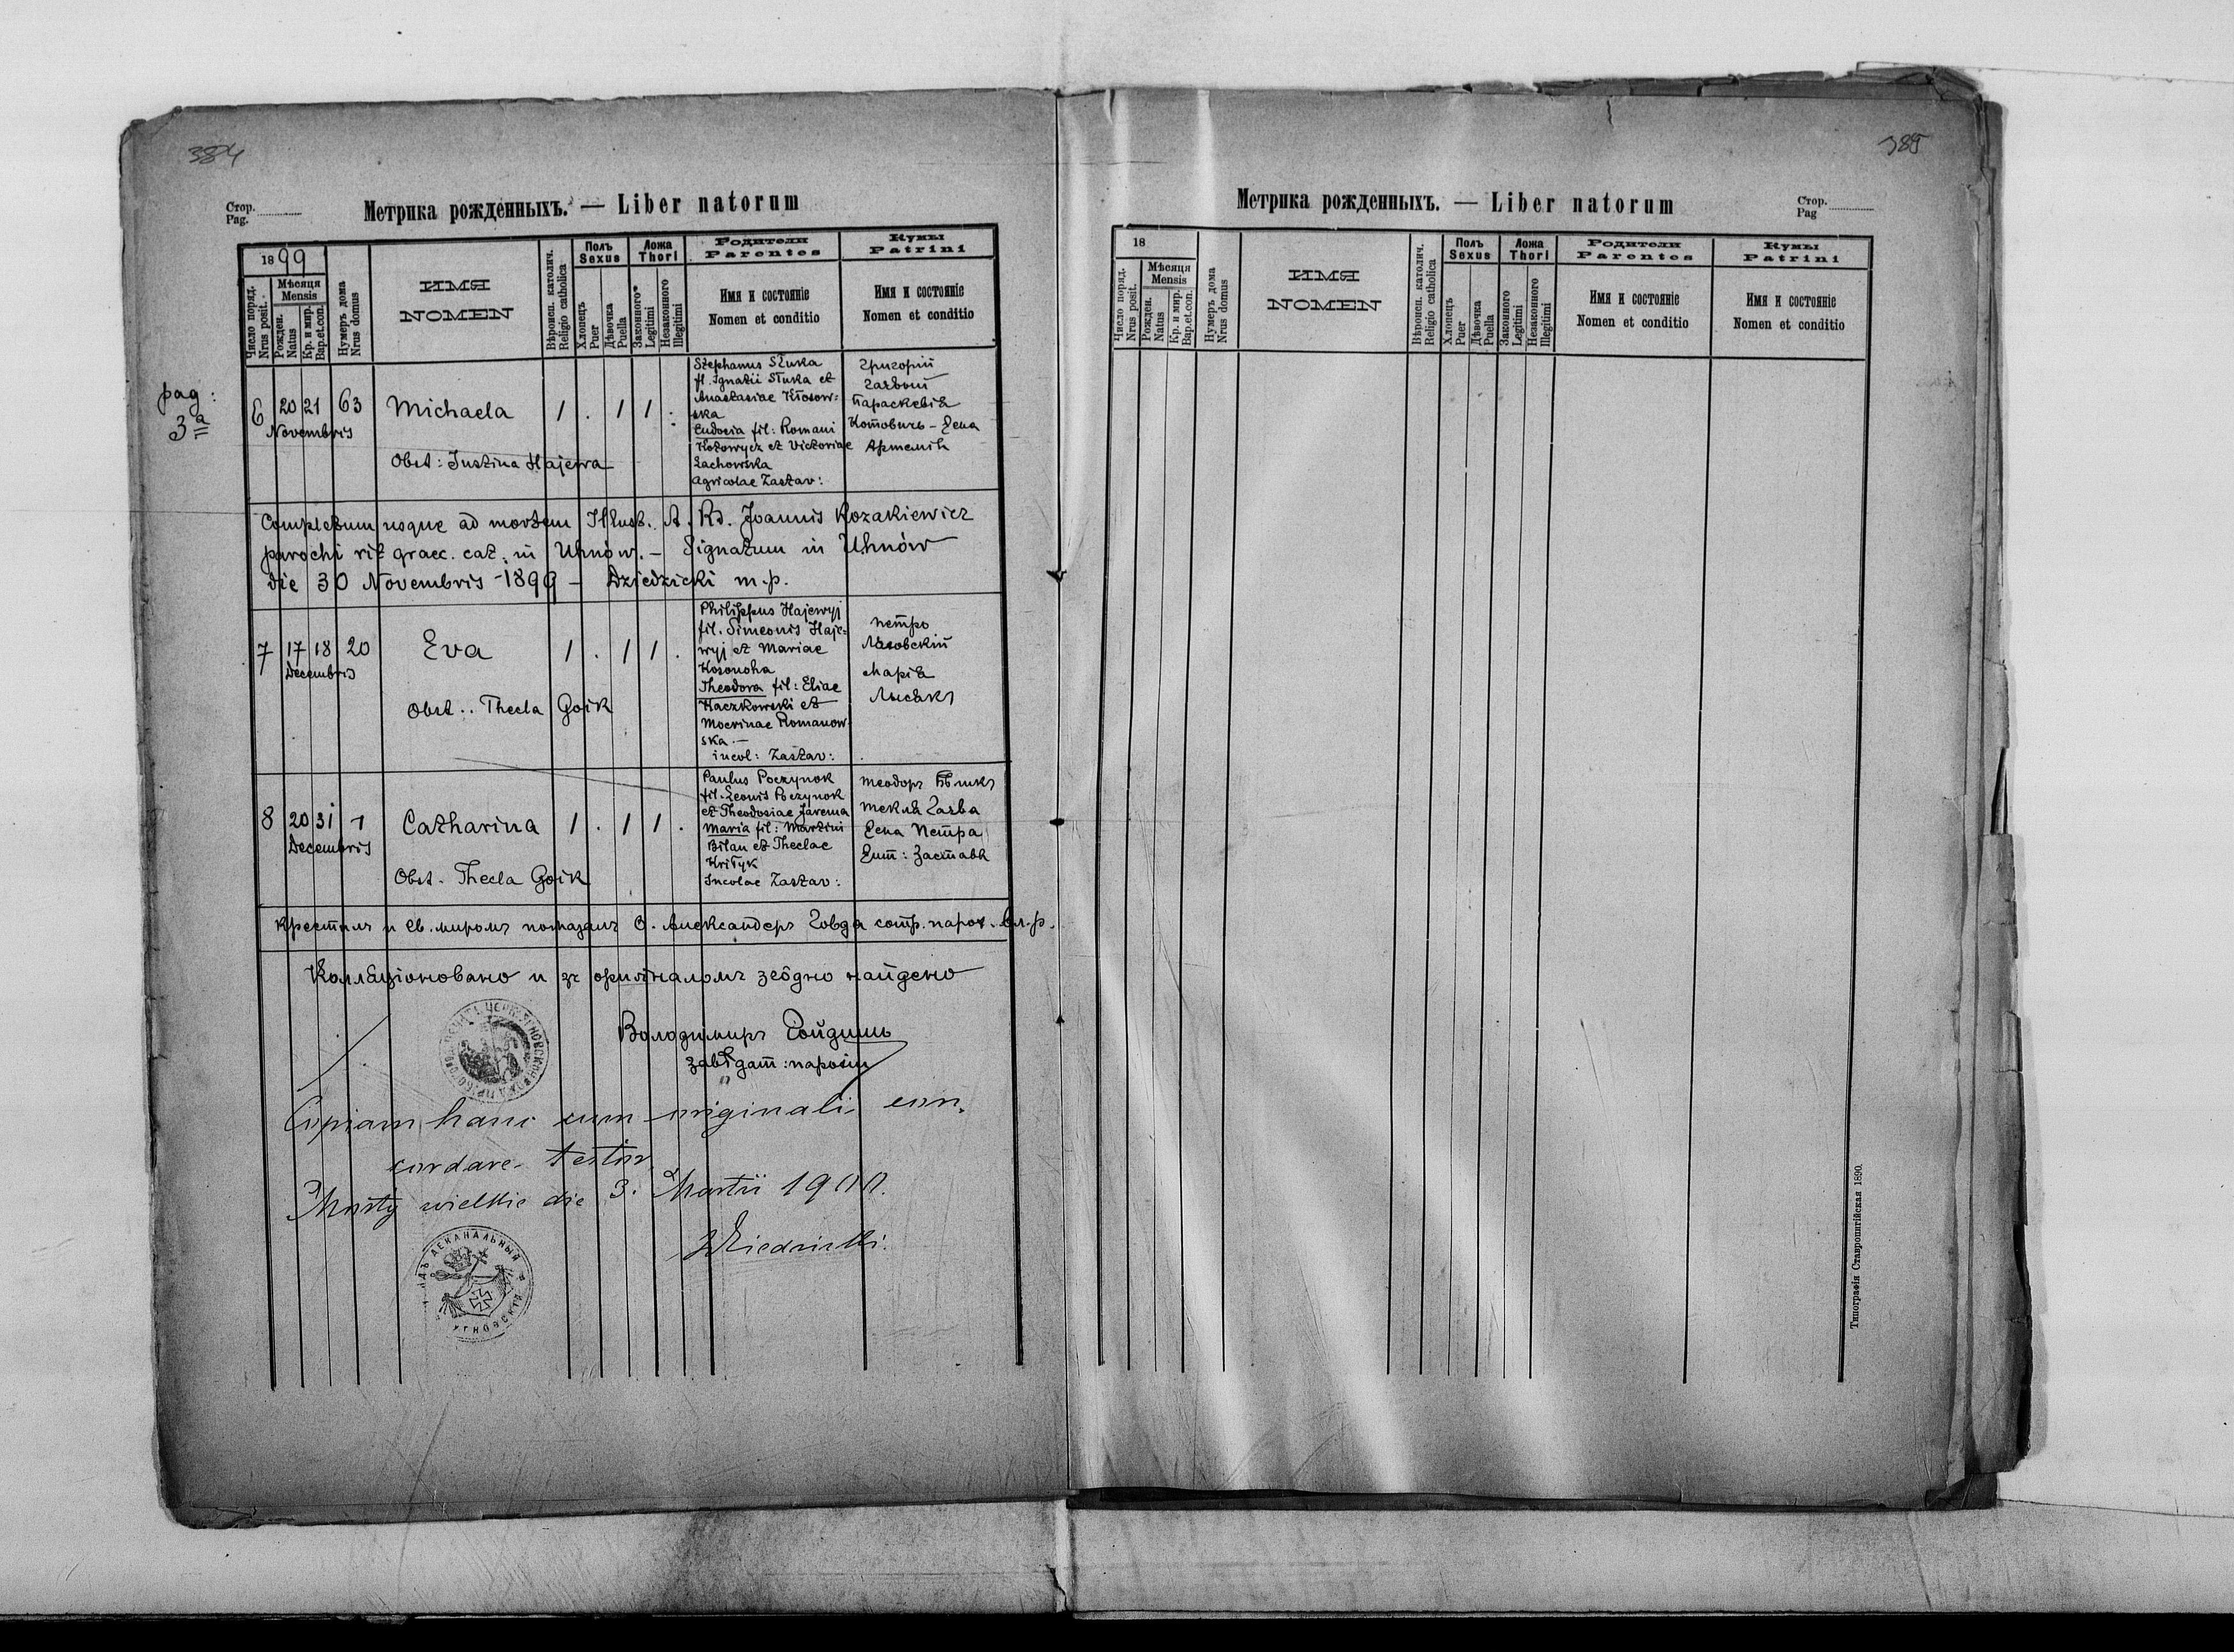 384
Стор.
Pag.
Метрика рожденныхъ. — Liber natorum
1899
Число поряд.
Nrus posit.
Мѣсяця
Mensis
Рожден.
Natus
Кр. и мир.
Bap.et.con.
Нумеръ дома
Nrus domus
ИМЯ
NOMEN
Вѣроисп. католич.
Religio catholica
Полъ
Sexus
Хлопецъ
Puer
Дѣвочка
Puella
Ложа
Thori
Законного
Legitimi
Незаконного
Illegitimi
Родители
Parentes
Имя и состояніе
Nomen et conditio
Кумы
Patrini
Имя и состояніе
Nomen et conditio
pag:
3a
6 20 21 63 Michaela 1 . 1 1 .
Novembris
Obst: Justina Hajewa
Stephanus Słuka
fl. Ignatii Słuka et
Anastasiae Kłosow-
ska
Eudosia fil: Romani
Kotowycz et Victoriae
Lachowska
Agricolae Zastav:
Григорій
Параскевія
Котовичъ - Жена
Артемія
Completum usque ad mortem Illust. A. Rd. Joannis Kozakiewicz
parochi rit graec. cat. in Uhnów. - Signatum in Uhnów
die 30 Novembris 1899 - Dziedzicki m.p.
7 17 18 20 Eva 1 . 1 1 .
Decembris
Obst.. Thecla Gojk
Philippus Hajewyj
fil. Simeonis Haje-
wyj et Mariae
Kosonoha
Theodora fil: Eliae
Kaczkowski et
Mocrinae Romanow
ska -
incol: Zastav:
Петро
Лясовскій
Марія
Лысакъ
8 20 31 1 Catharina 1 . 1 1 .
Decembris
Obst. Thecla Gojk
Paulus Poczynok
fil. Leonis Poczynok
et Theodosiae Jarema
Maria fil: Martini
Bilan et Theclae
Kriłyk
Incolae Zastav:
Теодоръ
Текля
Жена Петра
Жит: Заставя
Крестилъ и св. миромъ помазалъ О. Александеръ Говда сотр. парох. м.р.
Колляціоновано и зъ оригіналомъ згôдно найдено
Володимиръ
завѣдат: парохіи
Copiam hanc cum originali con-
cordare testor
Mosty wielkie die 3. Martii 1900.
Dziedzicki.
385
Метрика рожденныхъ. — Liber natorum
Стор.
Pag
18
Число поряд.
Nrus posit.
Мѣсяця
Mensis
Рожден.
Natus
Кр. и мир.
Bap.et.con.
Нумеръ дома
Nrus domus
ИМЯ
NOMEN
Вѣроисп. католич.
Religio catholica
Полъ
Sexus
Хлопецъ
Puer
Дѣвочка
Puella
Ложа
Thori
Законного
Legitimi
Незаконного
Illegitimi
Родители
Parentes
Имя и состояніе
Nomen et conditio
Кумы
Patrini
Имя и состояніе
Nomen et conditio
Типографія Ставропигійская 1890.